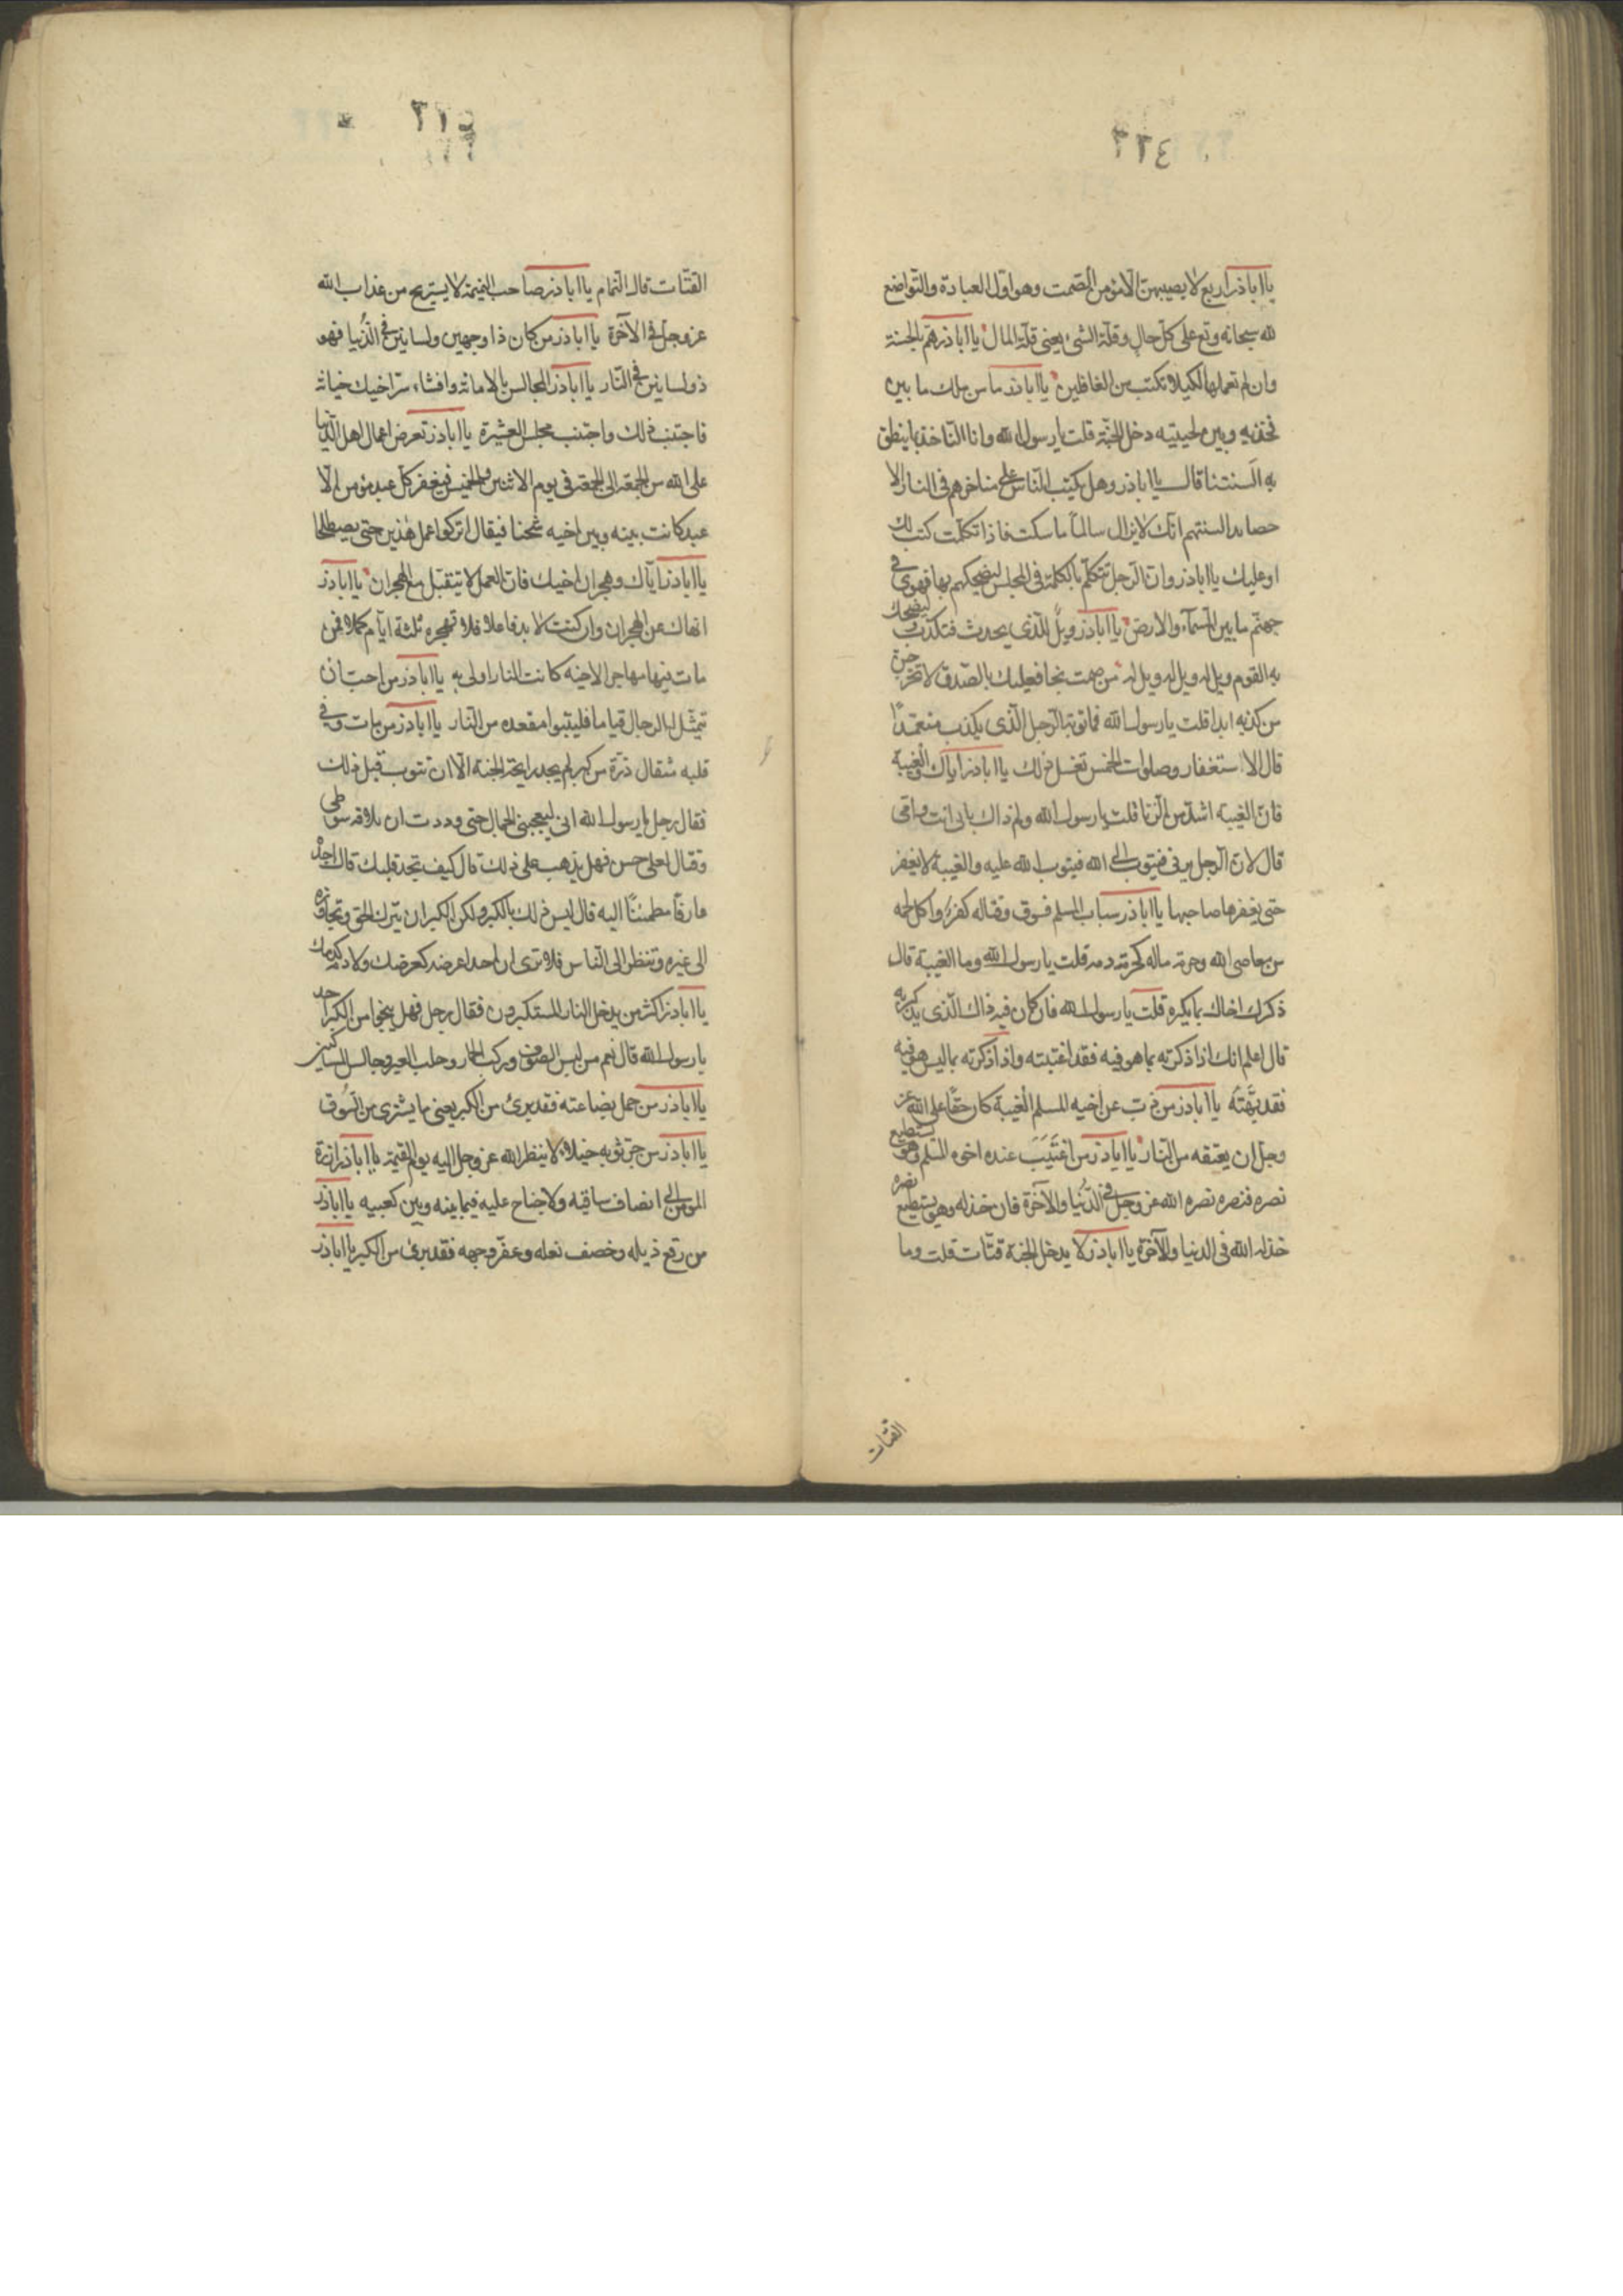 ٢٢٤
يا اباذر اربع لا يصيبهن الا مؤمن الصمت وهو اول العبادة والتواضع
لله سبحانه وتع على كل حال وقلة الشئ يعنى قلة المال يا اباذر هم بالحسنة
وان لم تعملها لكيلا تكتب من الغافلين يا اباذر من ملك ما بين
فخذيه وبين لحييه دخل الجنة قلت يا رسول الله وانا لنأخذ بما ينطق
به السنتنا قال يا اباذر وهل يكب الناس على مناخرهم فى النار الا
حصايد السنتهم انك لا تزال سالما ما سكت فاذا تكلمت كتب لك
او عليك يا اباذر وان الرجل يتكلم بالكلمة فى المجلس ليضحكهم بها فهوى فى
جهنم ما بين السماء والارض يا اباذر ويل للذى يحدث فتكذب ليضحك
به القوم ويل له ويل له ويل له من صمت نجا فعليك بالصدق لا تخرجن
من كذبه ابدا قلت يا رسول الله فما توبة الرجل الذى يكذب متعمدا
قال الاستغفار وصلوات الخمس تغسل ذلك يا اباذر اياك والغيبة
فان الغيبة اشد من الزنا قلت يا رسول الله ولم ذاك بابى انت وامى
قال لان الرجل يزنى فيتوب الى الله فيتوب الله عليه والغيبة لا يغفر
حتى يغفرها صاحبها يا اباذر سباب المسلم فسوق وقتاله كفر واكل لحمه
من معاصى الله وحرمة ماله كحرمة دمه قلت يا رسول الله وما الغيبة قال
ذكرك اخاك بما يكره قلت يا رسول الله فان كان فيه ذاك الذى يذكر به
قال اعلم انك اذا ذكرته بما هو فيه فقد اغتبته واذا ذكرته بما ليس هو فيه
فقد بهته يا اباذر من ذب عن اخيه المسلم الغيبة كان حقا على الله عز
وجل ان يعتقه من النار يا اباذر من اغتيب عنده اخوه المسلم وهو يستطيع
نصره فنصره نصره الله عز وجل فى الدنيا والآخرة فان خذله وهو يستطيع نصره
خذله الله فى الدنيا والآخرة يا اباذر لا يدخل الجنة قتات قلت وما
القتات
٢٢٥
القتات قال النمام يا اباذر صاحب النميمة لا يستريح من عذاب الله
عز وجل فى الآخرة يا اباذر من كان ذا وجهين ولسانين فى الدنيا فهو
ذو لسانين فى النار يا اباذر المجالس بالامانة وافشاء سر اخيك خيانة
فاجتنب ذلك واجتنب مجلس العشيرة يا اباذر تعرض اعمال اهل الدنيا
على الله من الجمعة الى الجمعة فى يوم الاثنين والخميس فيغفر كل عبد مؤمن الا
عبد كانت بينه وبين اخيه شحنا فيقال اتركوا عمل هذين حتى يصطلحا
يا اباذر اياك وهجران اخيك فان العمل لا يتقبل مع الهجران يا اباذر
انهاك عن الهجران وان كنت لا بد فاعلا فلا تهجره ثلثة ايام كملا فمن
مات فيها مهاجرا لاخيه كانت النار اولى به يا اباذر من احب ان
يتمثل له الرجال قياما فليتبوا مقعده من النار يا اباذر من مات وفى
قلبه مثقال ذرة من كبر لم يجد رايحة الجنة الا ان تتوب قبل ذلك
فقال رجل يا رسول الله انى ليعجبنى الجمال حتى وددت ان علاقة سوطى
وقبال نعلى حسن فهل يذهب على ذلك قال كيف تجد قلبك قال اجده
عارفا مطمئنا اليه قال ليس ذلك بالكبر ولكن الكبر ان تترك الحق وتجاوزه
الى غيره وتنظر الى الناس فلا ترى ان احدا عرضه كعرضك ولا دمه كدمك
يا اباذر اكثر من يدخل النار المستكبرون فقال رجل فهل ينجوا من الكبر احد
يا رسول الله قال نعم من لبس الصوف وركب الحمار وحلب العير وجالس المساكين
يا اباذر من حمل بضاعته فقد برئ من الكبر يعنى ما يشترى من السوق
يا اباذر من جر ثوبه خيلاء لا ينظر الله عز وجل اليه يوم القيمة يا اباذر ازرة
المؤمن الى انصاف ساقيه ولا جناح عليه فيما بينه وبين كعبيه يا اباذر
من رقع ذيله وخصف نعله وعفر وجهه فقد برئ من الكبر يا اباذر